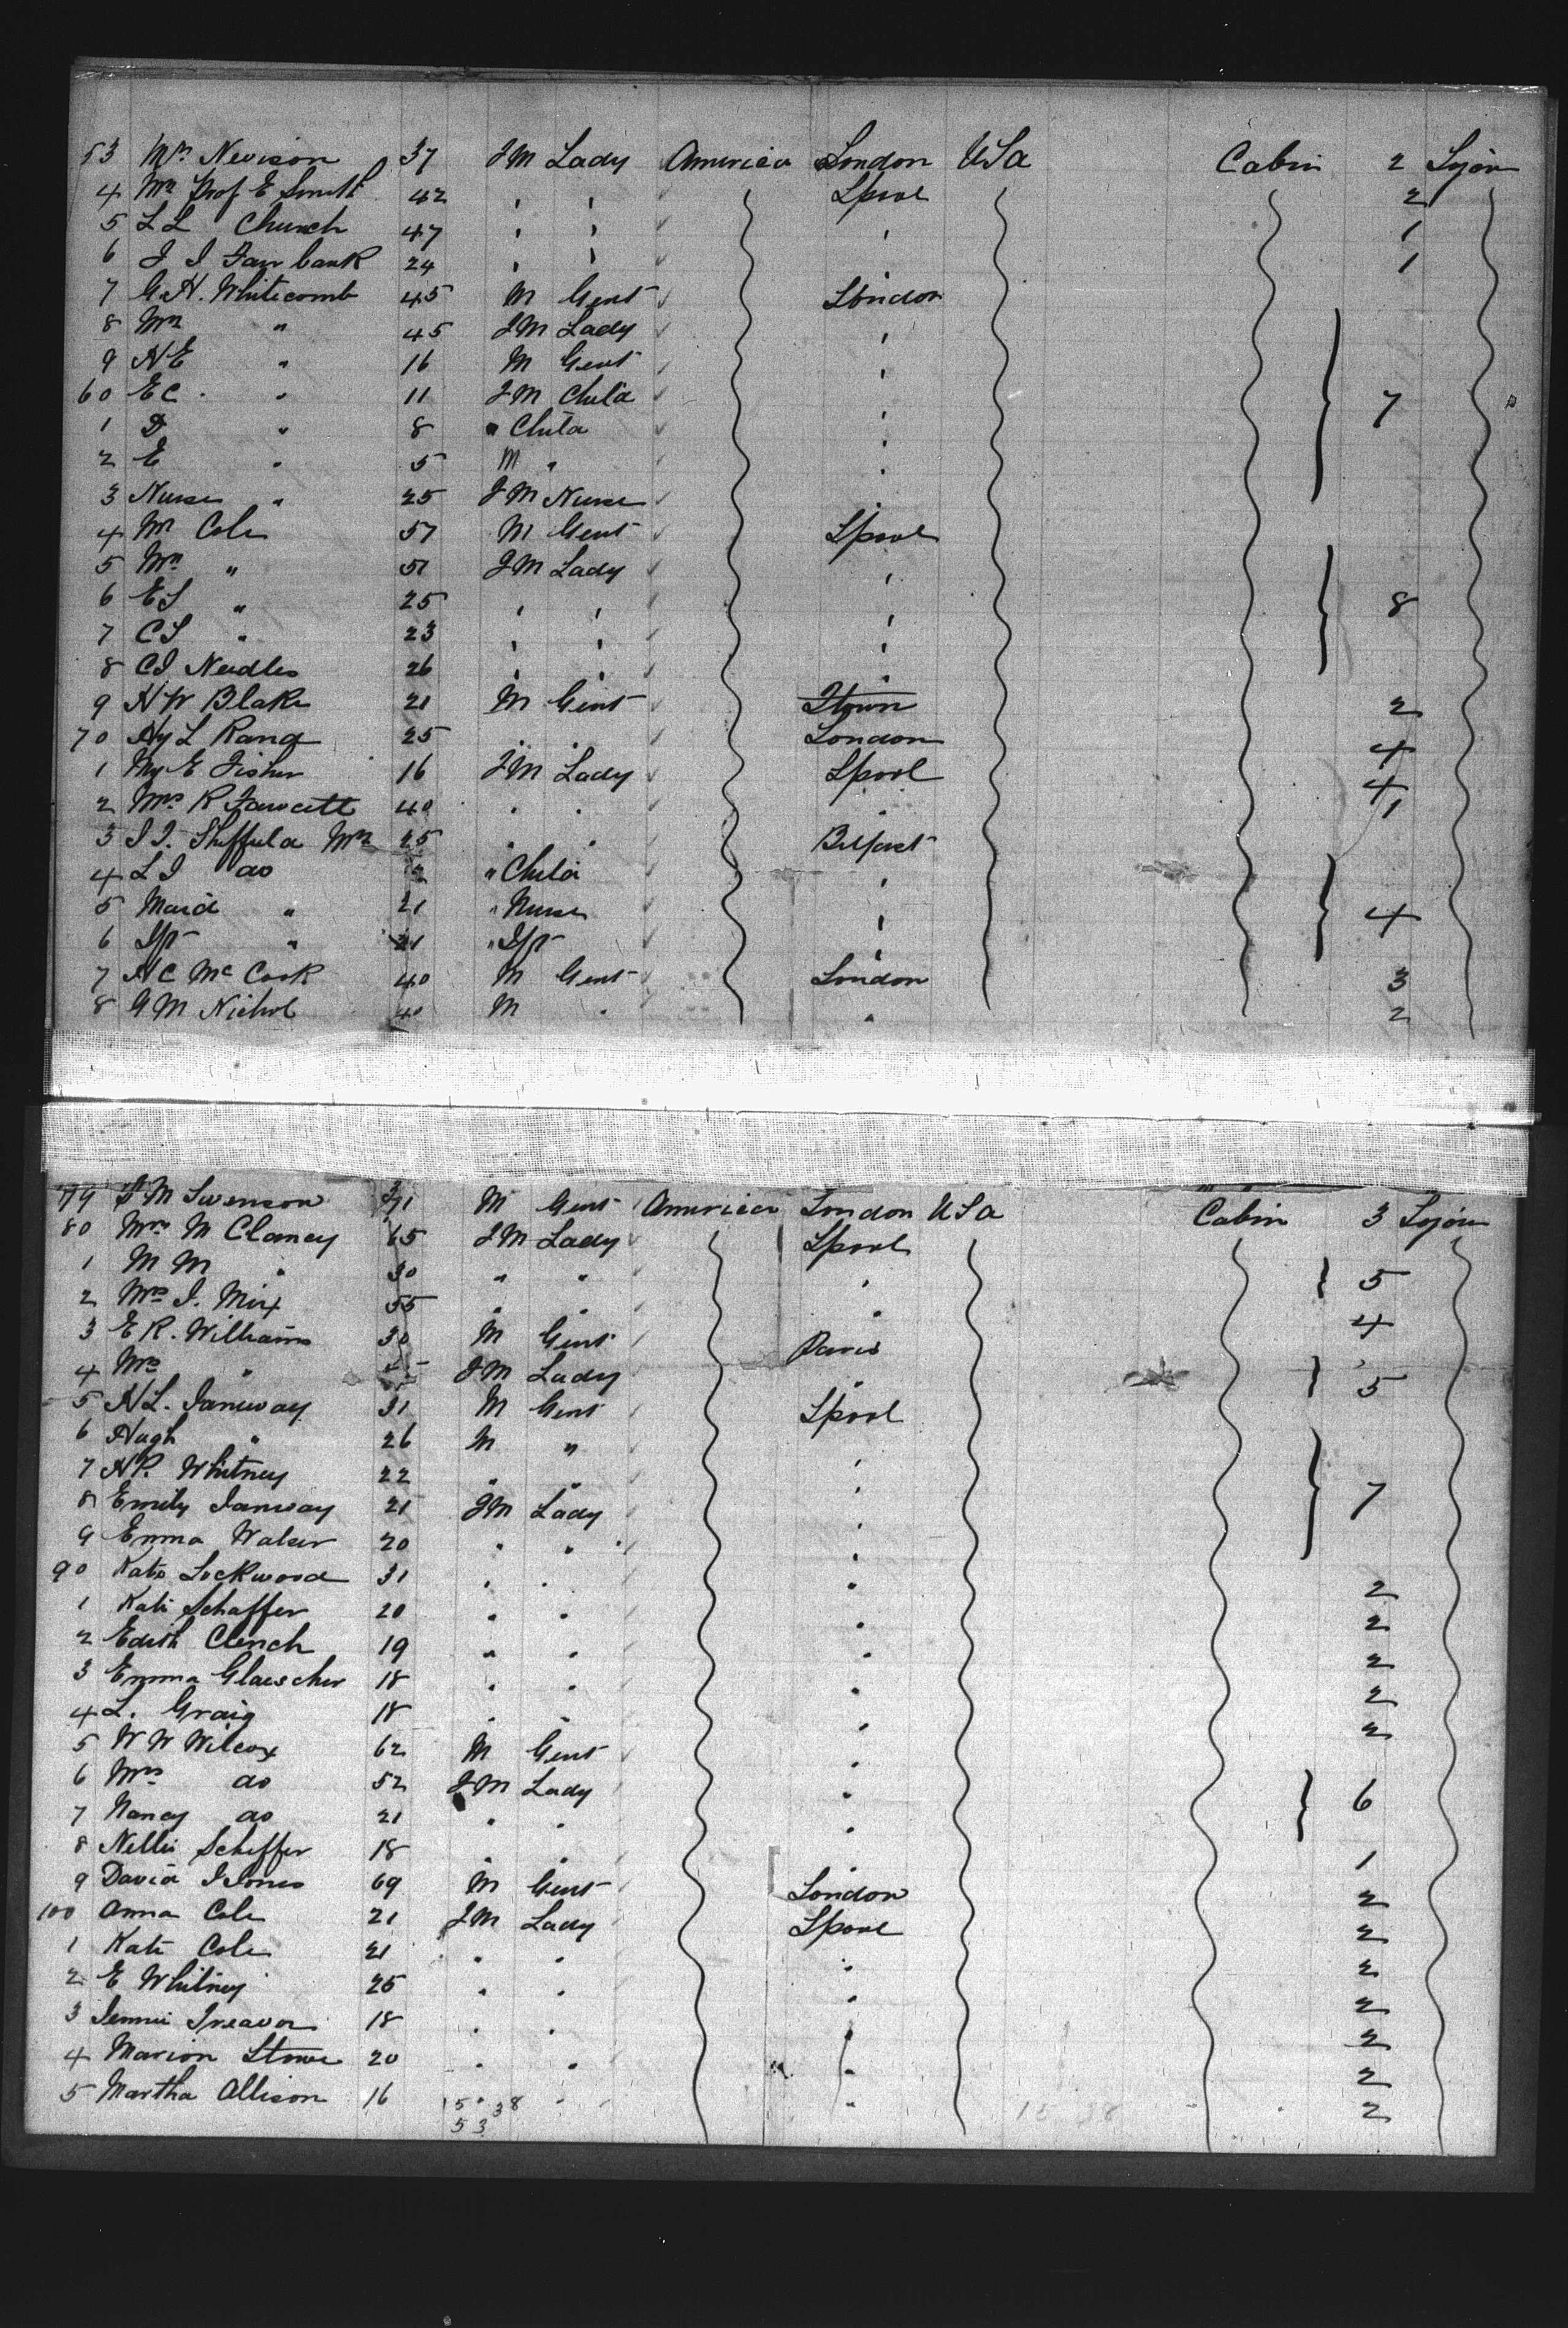 53 Mrs Nevison 37 FM Lady America London USA Cabin 2 Sojor
4 Mrs Prof E Smith 42 " " Lpool 2
5 L L Church 47 " " " 1
6 J I Fairbank 24 " " " 1
7 G.H. Whitecomb 45 M Gent London
8 Mrs " 45 FM Lady "
9 HE " 16 M Gent "
60 EC. " 11 FM Child " 7
1 D " 8 " Child "
2 E " 5 M " "
3 Nurse " 25 FM Nurse "
4 Mr Cole 57 M Gent Lpool
5 Mrs " 51 FM Lady "
6 ES " 25 " " " 8
7 CS " 23 " " "
8 CI Needles 26 " " "
9 HW Blake 21 M Gent Qtown 2
70 Hy L Rand 25 " " London 4
1 My E Fisher 16 FM Lady Lpool 4
2 Mrs R Fawcett 40 " " " 1
3 I I. Sheffield Mrs 25 " " Belfast
4 L I do 2 " Child "
5 Maid " 21 " Nurse " 4
6 " 21 " "
7 HC McCook 40 M Gent London 3
8 GM Nichol 40 M " " 2
79 M Swenson 31 M Gent America London USA Cabin 3 Sojor
80 Mrs M Clancy 65 FM Lady Lpool
1 M M " 30 " " " 5
2 Mrs I. Mix 55 " " " 4
3 E R. Williams 30 M Gent Paris
4 Mrs " FM Lady " 5
5 HL. Janeway 31 M Gent Lpool
6 Hugh " 26 M " "
7 HP. Whitney 22 " " "
8 Emily Janway 21 FM Lady " 7
9 Emma Walser 20 " " "
90 Kate Lockwood 31 " " " 2
1 Kate Schaffer 20 " " " 2
2 Edith Clench 19 " " " 2
3 Emma Glaescher 18 " " " 2
4 L. Graig 18 " " " 2
5 W W Wilcox 62 M Gent "
6 Mrs do 52 FM Lady " 6
7 Nancy do 21 " " "
8 Nellie Scheffer 18 " " " 1
9 David I Jones 69 M Gent London 2
100 Anna Cole 21 FM Lady Lpool 2
1 Kate Cole 21 " " " 2
2 E Whitney 25 " " " 2
3 Jennie Treavor 18 " " " 2
4 Marion Stowe 20 " " " 2
5 Martha Allison 16 " " " 2
15 38
53
15 38